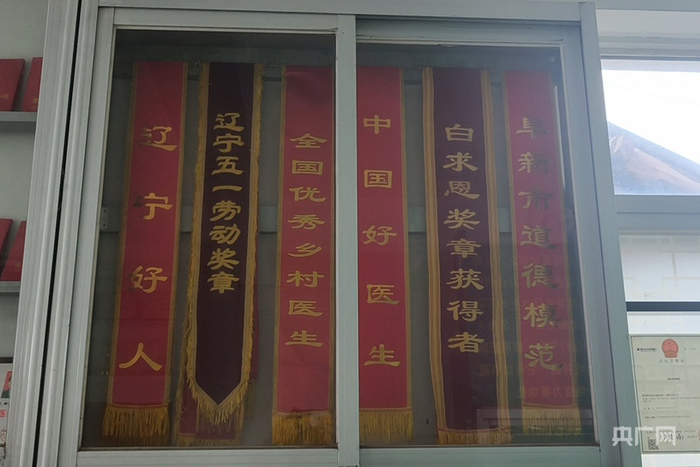 辽宁好人
辽宁五一劳动奖章
全国优秀乡村医生
中国好医生
白求恩奖章获得者
阜新市道德模范
央广网